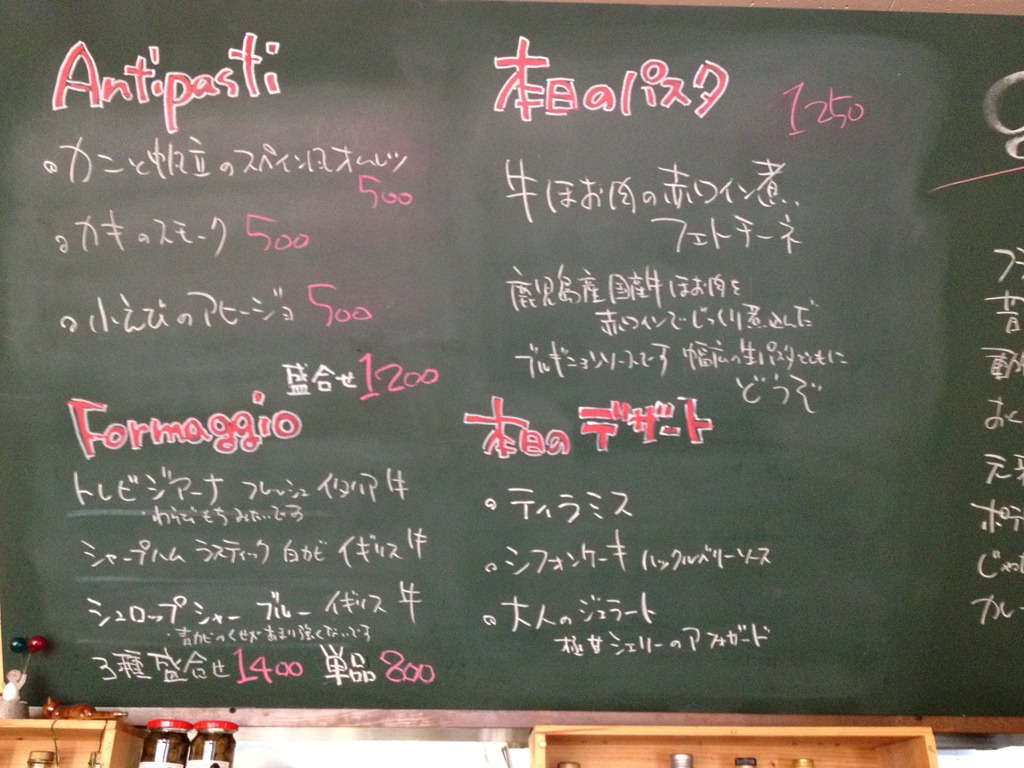 Antipasti
カニと帆立のスペイン風オムレツ
500
カキのスモーク 500
小えびのアヒージョ 500
盛合せ 1200
Formaggio
トレビジアーナ フレッシュ イタリア 牛
・わらびもちみたいです
シャープハム ラスティック 白カビ イギリス 牛
シュロップシャー ブルー イギリス 牛
・青カビのくせがあまり強くないです
3種盛合せ 1400 単品 800
本日のパスタ 1250
牛ほお肉の赤ワイン煮
フェトチーネ
鹿児島産国産牛ほお肉を
赤ワインでじっくり煮込んだ
ブルギニョンソースです 幅広の生パスタとともに
どうぞ
本日の デザート
ティラミス
シフォンケーキ ハックルベリーソース
大人のジェラート
極甘シェリーのアフォガード